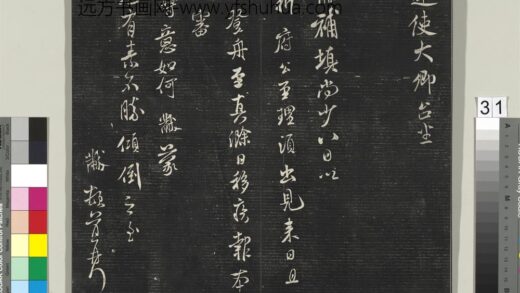 远方书画网 www.yfshuhua.com
运使大卿台坐
補填尚少八日以
府公至理須出見来日且
登舟至真滁日移疾報本
審
意如何 黻蒙
有素不勝傾倒之至
黻 頓首
31